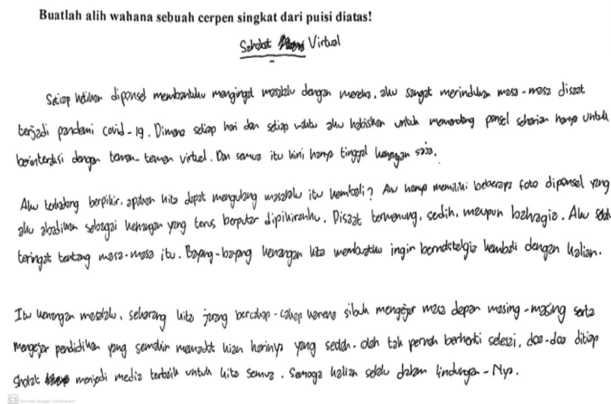 Buatlah alih wahana sebuah cerpen singkat dari puisi diatas!
Sahabat Virtual
Setiap ketikan diponsel membantuku mengingat masalalu dengan mereka, aku sangat merindukan masa-masa disaat
terjadi pandemi covid-19. Dimana setiap hari dan setiap waktu aku habiskan untuk memandang ponsel seharian hanya untuk
berinteraksi dengan teman-teman virtual. Dan semua itu kini hanya tinggal kenangan saja.
Aku terkadang berpikir, apakah kita dapat mengulang masalalu itu kembali? Aku hanya memiliki beberapa foto diponsel yang
aku abadikan sebagai kenangan yang terus berputar dipikiranku. Disaat termenung, sedih, maupun bahagia. Aku
teringat tentang masa-masa itu. Bayang-bayang kenangan kita membuatku ingin bernostalgia kembali dengan kalian.
Itu kenangan masalalu, sekarang kita jarang bercakap-cakap karena sibuk mengejar masa depan masing-masing serta
mengejar pendidikan yang semakin memadat kian harinya yang seolah-olah tak pernah berhenti selesai, doa-doa ditiap
sholat menjadi media terbaik untuk kita semua. Semoga kalian selalu dalam lindungan-Nya.